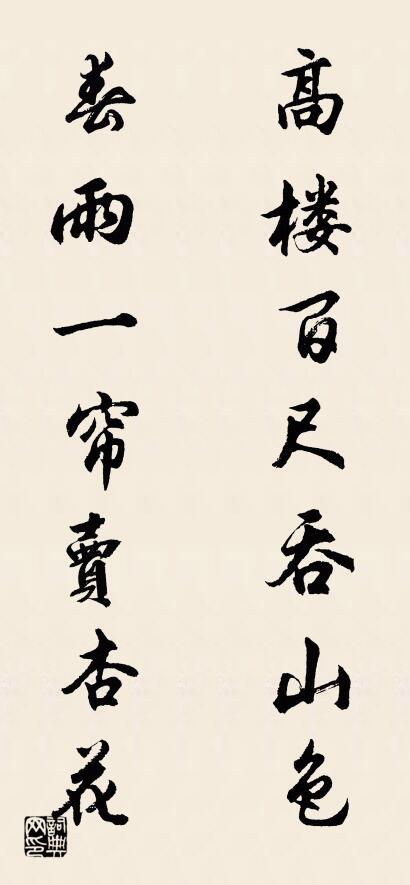 高楼百尺吞山色
春雨一帘賣杏花
詞典网印